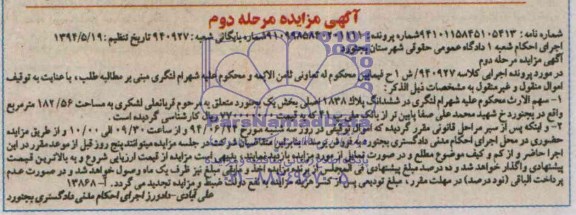 آگهی مزایده مرحله دوم
شماره نامه : ۹۴۱۰۱۱۵۸۴۵۱۰۵۴۱۳ شماره پرونده : شماره بایگانی شعبه : ۹۴۰۹۲۷ تاریخ تنظیم : ۱۳۹۴/۵/۱۹
اجرای احکام شعبه ۱ دادگاه عمومی حقوقی شهرستان بجنورد
آگهی مزایده مرحله دوم
در مورد پرونده اجرایی کلاسه ۹۴۰۹۲۷/ش ۱ ح فیمابین محکوم له تعاونی ثامن الائمه و محکوم علیه شهرام لنگری مبنی بر مطالبه طلب ، با عنایت به توقیف
اموال منقول و غیرمنقول به مشخصات ذیل الذکر :
۱- سهم الارث محکوم علیه شهرام لنگری در ششدانگ پلاک ۲۸۳۸ اصلی بخش یک بجنورد متعلق به مرحوم قربانعلی لشکری به مساحت ۱۸۲/۵۶ مترمربع
واقع در بجنورد خ شهید محمد علی صفا پایین تر از بانک ملی کارشناسی گردیده است .
۲- و اینکه پس از سیر مراحل قانونی مقرر گردیده که اموال توقیفی در روز شنبه مورخ ۹۴/۰۶/۲۴ و از ساعت ۰۹/۳۰ الی ۱۰/۰۰ و از طریق مزایده
حضوری در محل اجرای احکام مدنی دادگستری بجنورد به فروش برسد. بنابراین متقاضیان شرکت در جلسه مزایده میتوانند پنج روز قبل از موعد مقرر در این
اجرا حاضر و از کم و کیف موضوع مطلع و در صورت تمایل از مورد مزایده بازدید نمایند. مزایده از قیمت ارزیابی شروع و به بالاترین قیمت
پیشنهادی واگذار خواهد شد و ده درصد مبلغ پیشنهادی فی المجلس از برنده مزایده اخذ و مابقی مبلغ نیز ظرف یک ماه وصول خواهد شد و در صورت عدم
پرداخت الباقی (نود درصد) در مهلت مقرر ، مبلغ تودیعی پس از کسر هزینه مزایده به نفع دولت ضبط و مزایده تجدید می گردد. آ-۱۳۸۶۸
علی آبادی-دادورز اجرای احکام مدنی دادگستری بجنورد